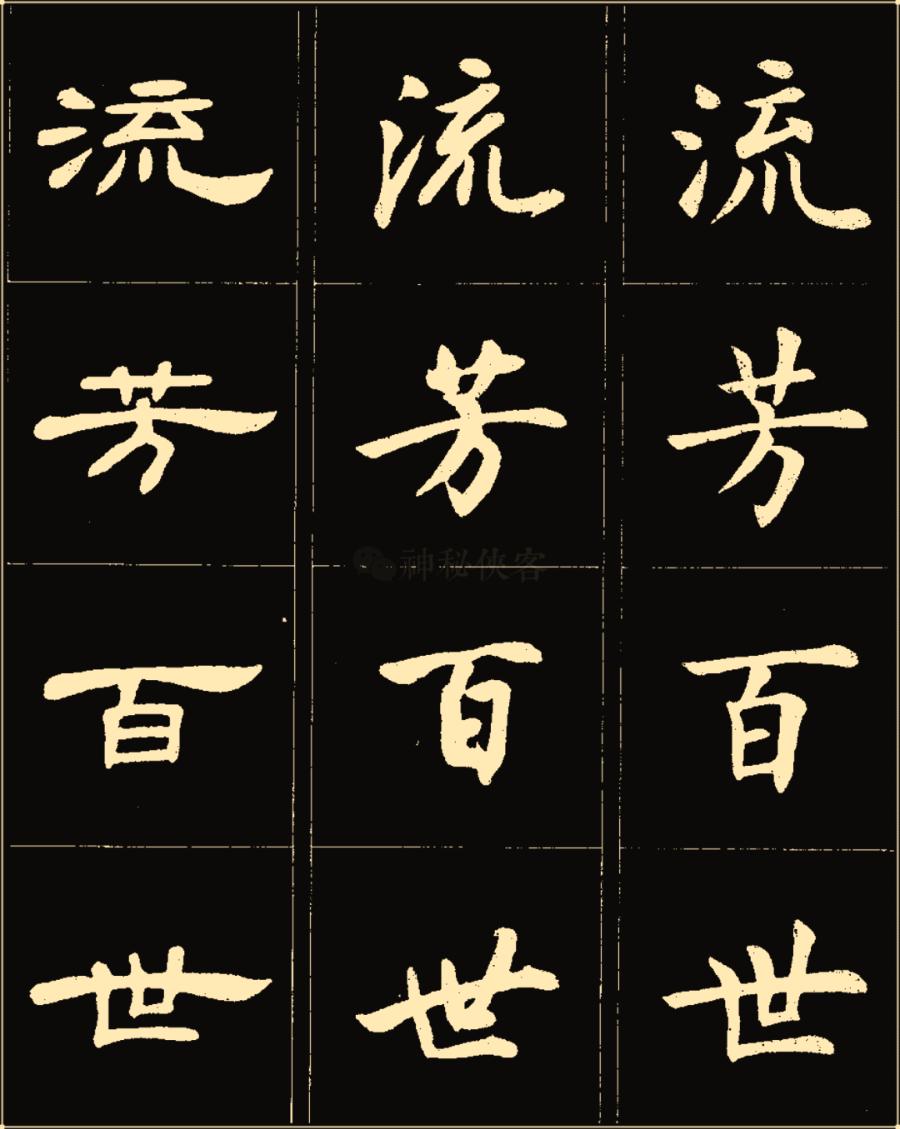 流芳百世
流芳百世
流芳百世
神秘侠客